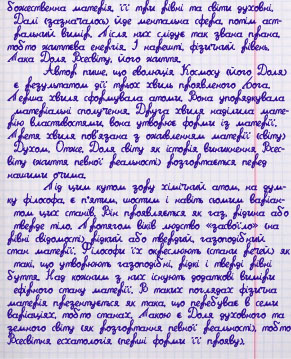 божественна матерія, її три рівні та світи духовні.
Далі (зазначалось) йде ментальна сфера, потім аст-
ральний вимір. Після них слідує так звана прана,
тобто життєва енергія. І нарешті, фізичний рівень.
Така Доля Всесвіту, його життя.
Автор пише, що еволюція Космосу (його Доля)
є результатом дії трьох хвиль проявленого Бога.
Перша хвиля сформувала атоми. Вона упорядкувала
матеріальні сполучення. Друга хвиля наділила мате-
рію властивостями, вона утворює форми із матерії.
Третя хвиля пов'язана з оживленням матерії (світу)
Духом. Отже, Доля світу як історія виникнення Всес-
віту (життя певної реальності) розгортається перед
нашими очима.
Під цим кутом зору хімічний атом, на дум-
ку філософа, є п'ятим, шостим і навіть сьомим варіан-
том цих станів. Він проявляється як газ, рідина або
тверде тіло. А протягом віків людство "засвоїло" на
рівні свідомості рідкий або твердий, газоподібний
стан матерії. Філософи їх окреслюють (стани речей) як
такі, що утворюють газоподібні, рідкі і тверді рівні
буття. Над кожним з них існують додаткові виміри
ефірного стану матерії. В таких поглядах фізична
матерія презентується як така, що перебуває в семи
варіаціях, тобто станах. Такою є Доля духовного та
земного світу (як розгортання певної реальності), тобто
Всесвітня есхатологія (перші форми її прояву).